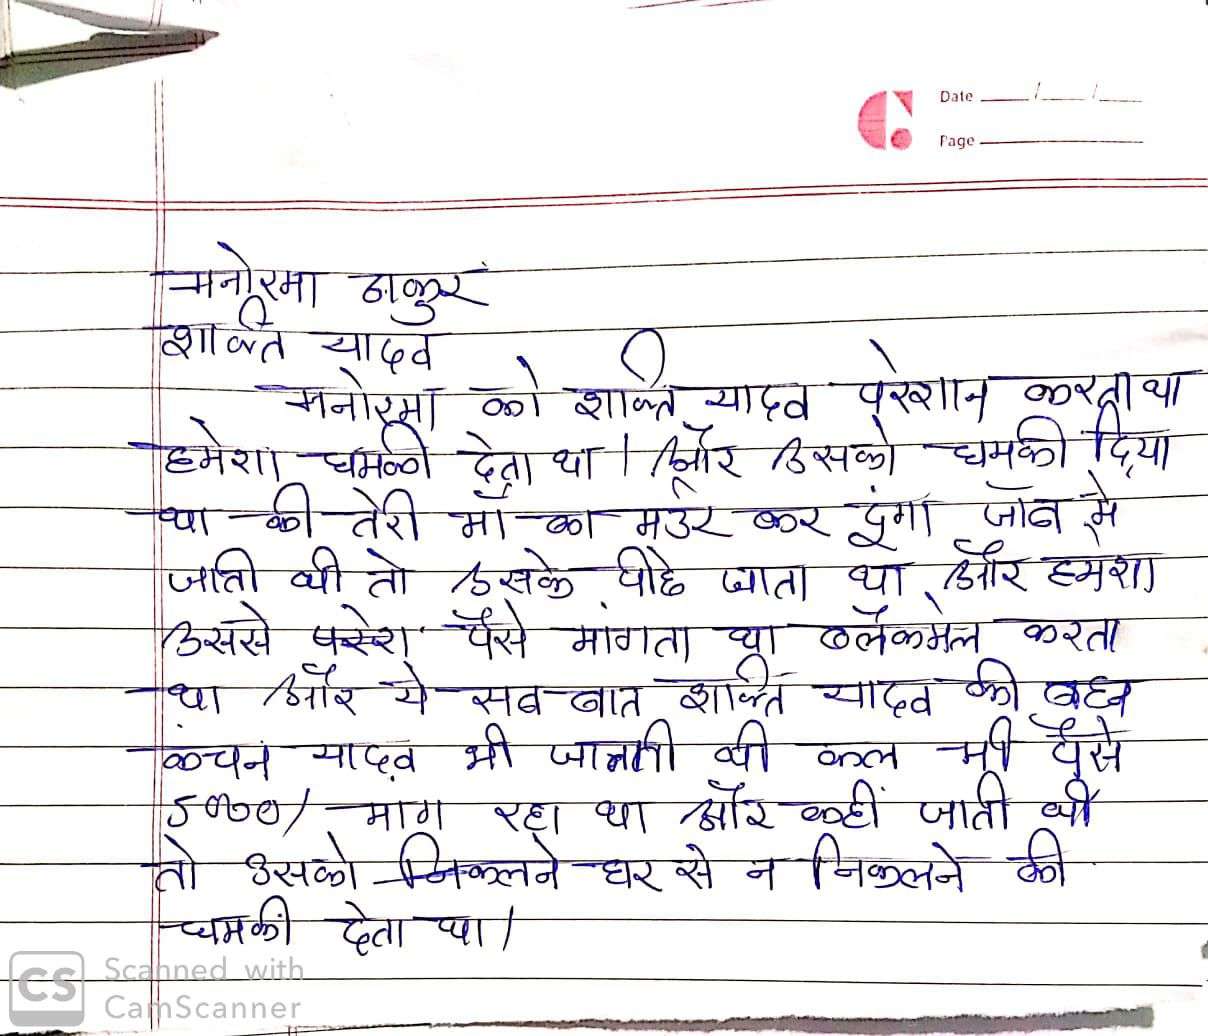 Date __/__/__
Page
मनोरमा ठाकुर
शक्ति यादव
मनोरमा को शक्ति यादव परेशान करता था
हमेशा धमकी देता था । और उसको धमकी दिया
था की तेरी माँ का मर्डर कर दूंगा जॉब में
जाती थी तो उसके पीछे जाता था और हमेशा
उससे पैसे मांगता था ब्लैकमेल करता
था और ये सब बात शक्ति यादव की बहन
कंचन यादव भी जानती थी कल भी पैसे
5000/ माग रहा था और कहीं जाती थी
तो उसको घर से न निकलने की
धमकी देता था ।
CS Scanned with
CamScanner